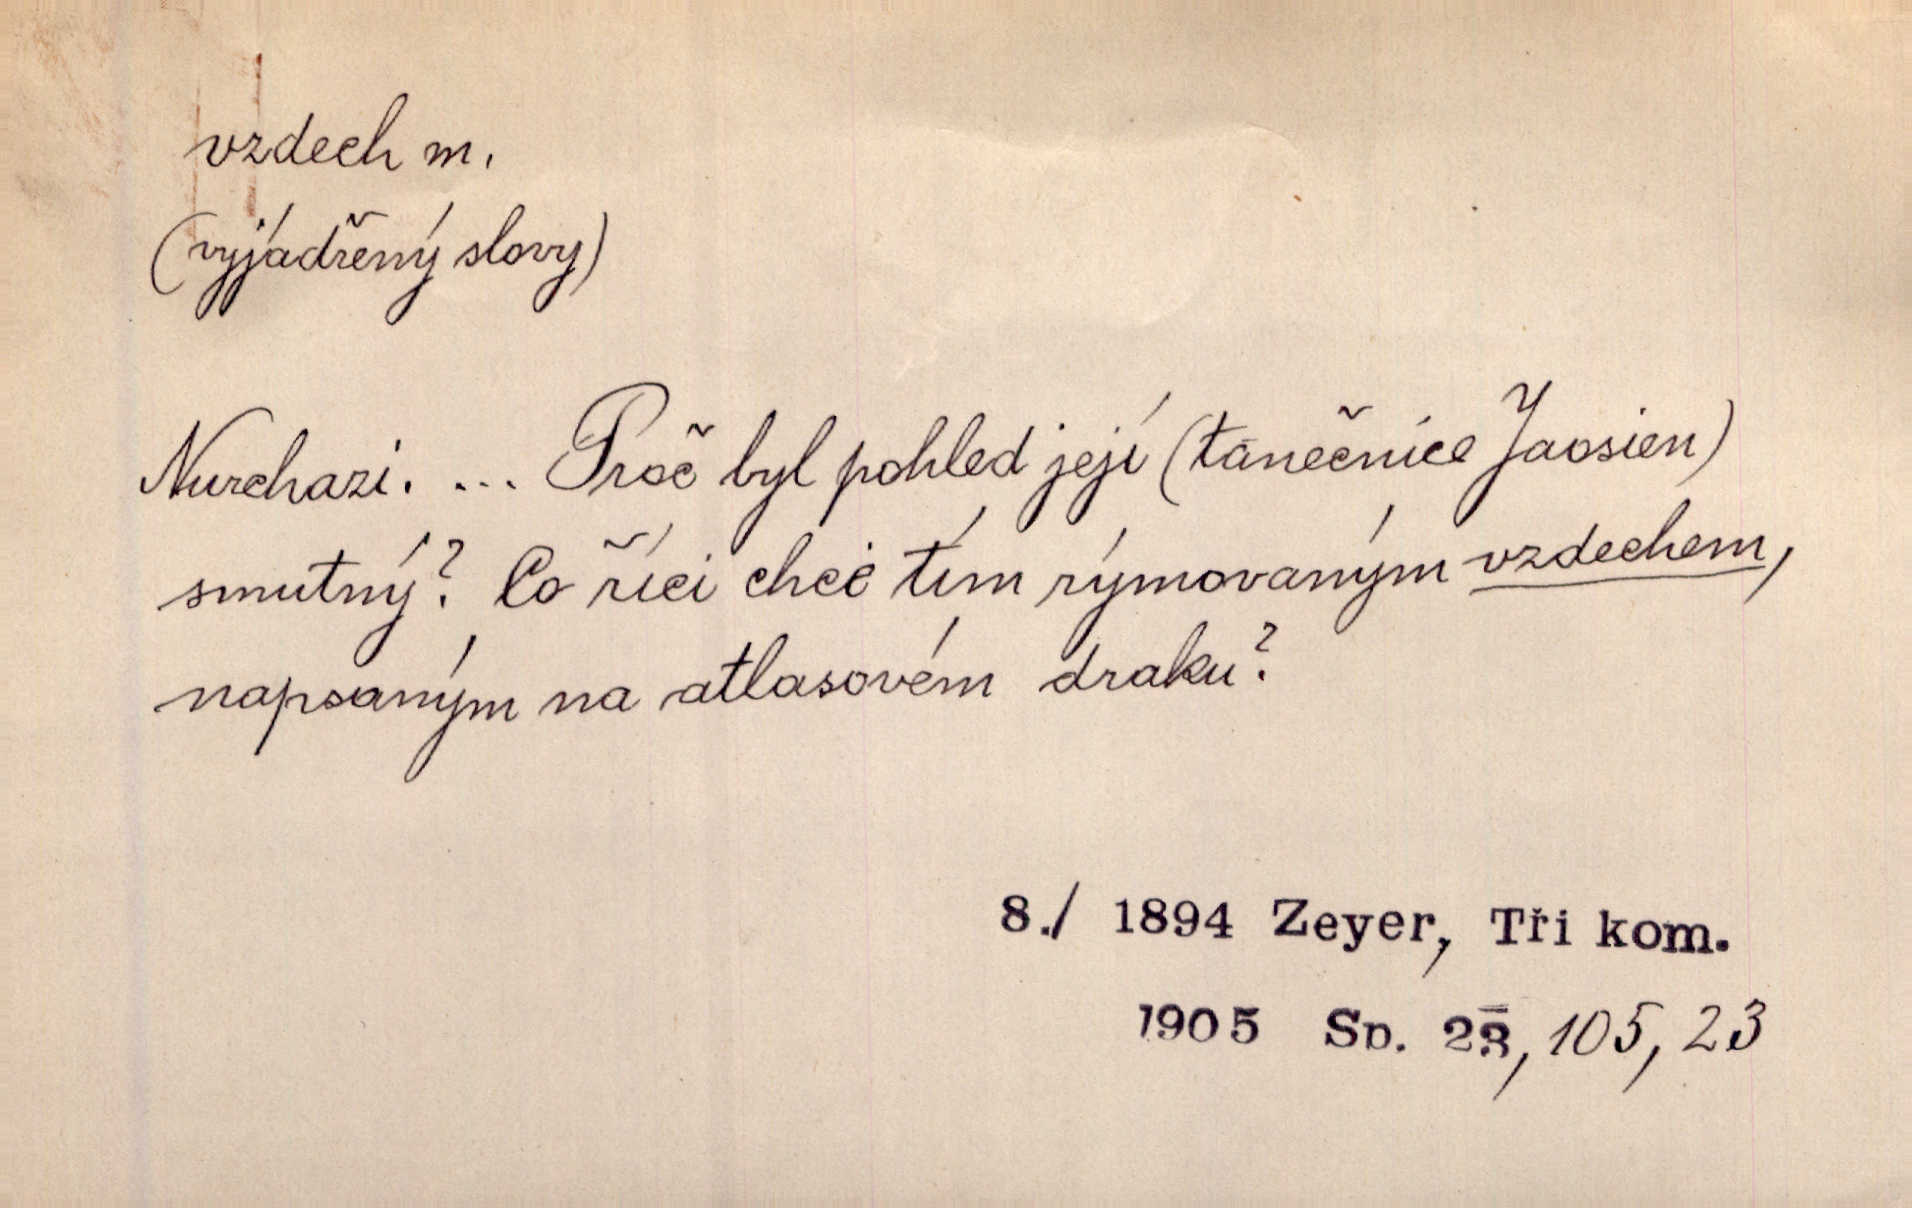 vzdech m.
(vyjádřený slovy)
Nurchazi. ... Proč byl pohled její (tanečnice Jaosien)
smutný? Co říci chce tím rýmovaným vzdechem,
napsaným na atlasovém draku?
8./ 1894 Zeyer, Tři kom.
1905 Sp. 23, 105, 23